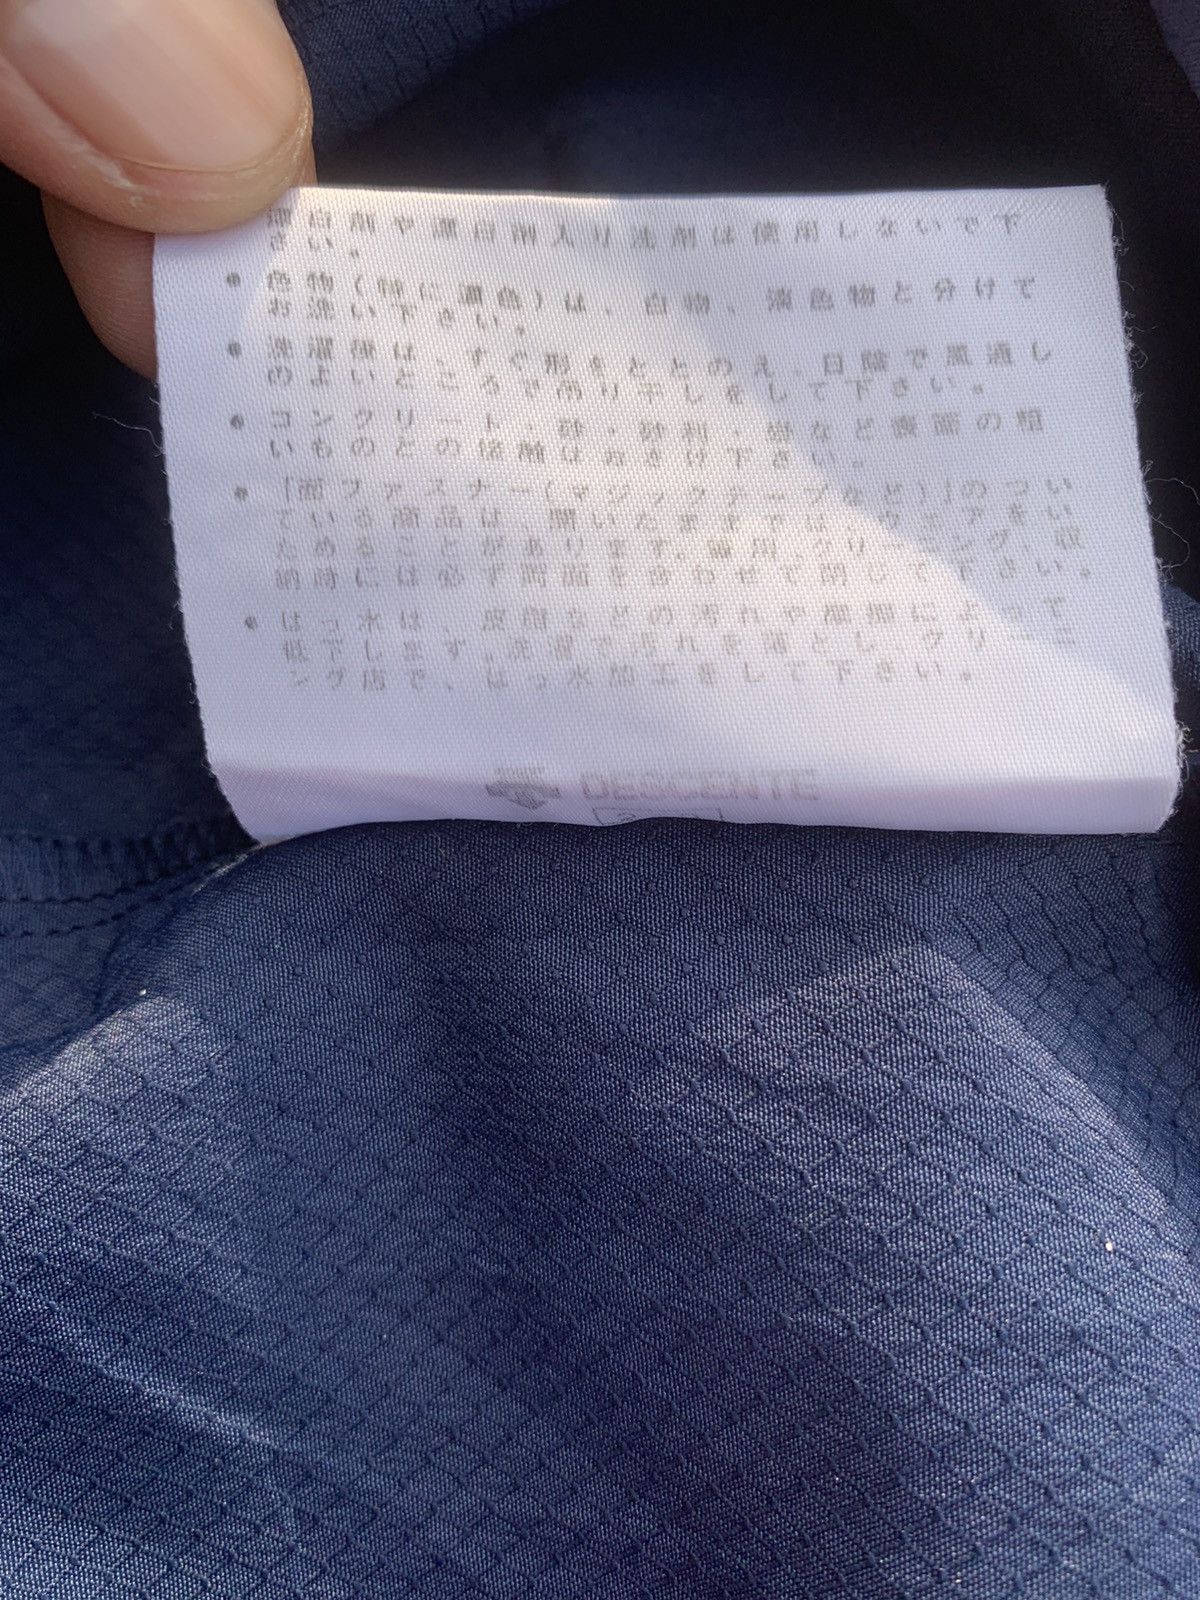 漂白剤や漂白剤入り洗剤は使用しないで下
さい。
● 色物(特に濃色)は、白物、淡色物と分けて
お洗い下さい。
● 洗濯後は、すぐ形をととのえ、日陰で風通し
のよいところで吊り干しをして下さい。
● コンクリート・砂・砂利・岩など表面の粗
いものとの接触はおさけ下さい。
● 「面ファスナー(マジックテープなど)」のつい
ている商品は、開いたままではウェアをい
ためることがあります。着用、クリーニング、収
納時には必ず両面を合わせて閉じて下さい。
● はっ水は、皮脂などの汚れや摩擦によって
低下します。洗濯で汚れを落とし、クリーニ
ング店で、はっ水加工をして下さい。
DESCENTE